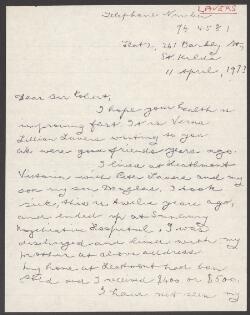 LAVERS
Telephone Number
94 4581
Flat 2, 241 Barkly St,
St. Kilda
11 April, 1973
Dear Sir Robert,
I hope your health is
improving fast. It is Verna
Lillian Lavers writing to you
we were good friends years ago.
I lived at Heathmont
Victoria with Peter Lavers and my
son my son Douglas. I took
sick, this is twelve years ago,
and ended up at
Hospital, I was
discharged and lived with my
mother at above address
my home at Heathmont had been
sold and I received $400 or $500.
I have not seen my